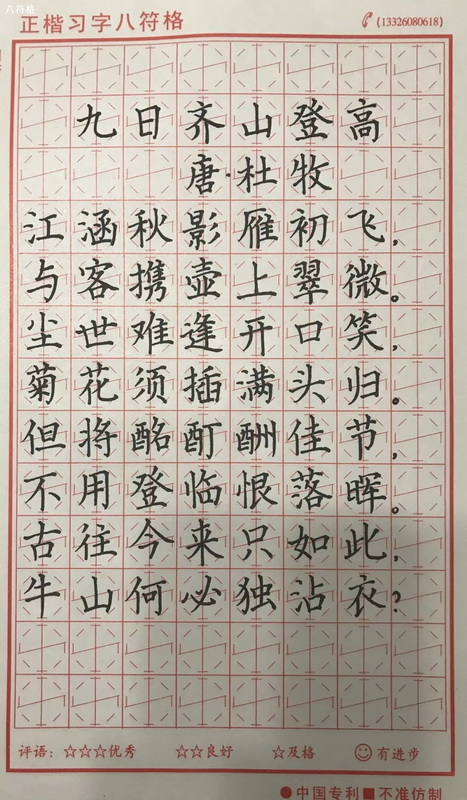 八符格
正楷习字八符格 (13326080618)
九日齐山登高
唐·杜牧
江涵秋影雁初飞,
与客携壶上翠微。
尘世难逢开口笑,
菊花须插满头归。
但将酩酊酬佳节,
不用登临恨落晖。
古往今来只如此,
牛山何必独沾衣?
评语: ☆☆☆优秀 ☆☆良好 ☆及格 ☺有进步
●中国专利■不准仿制